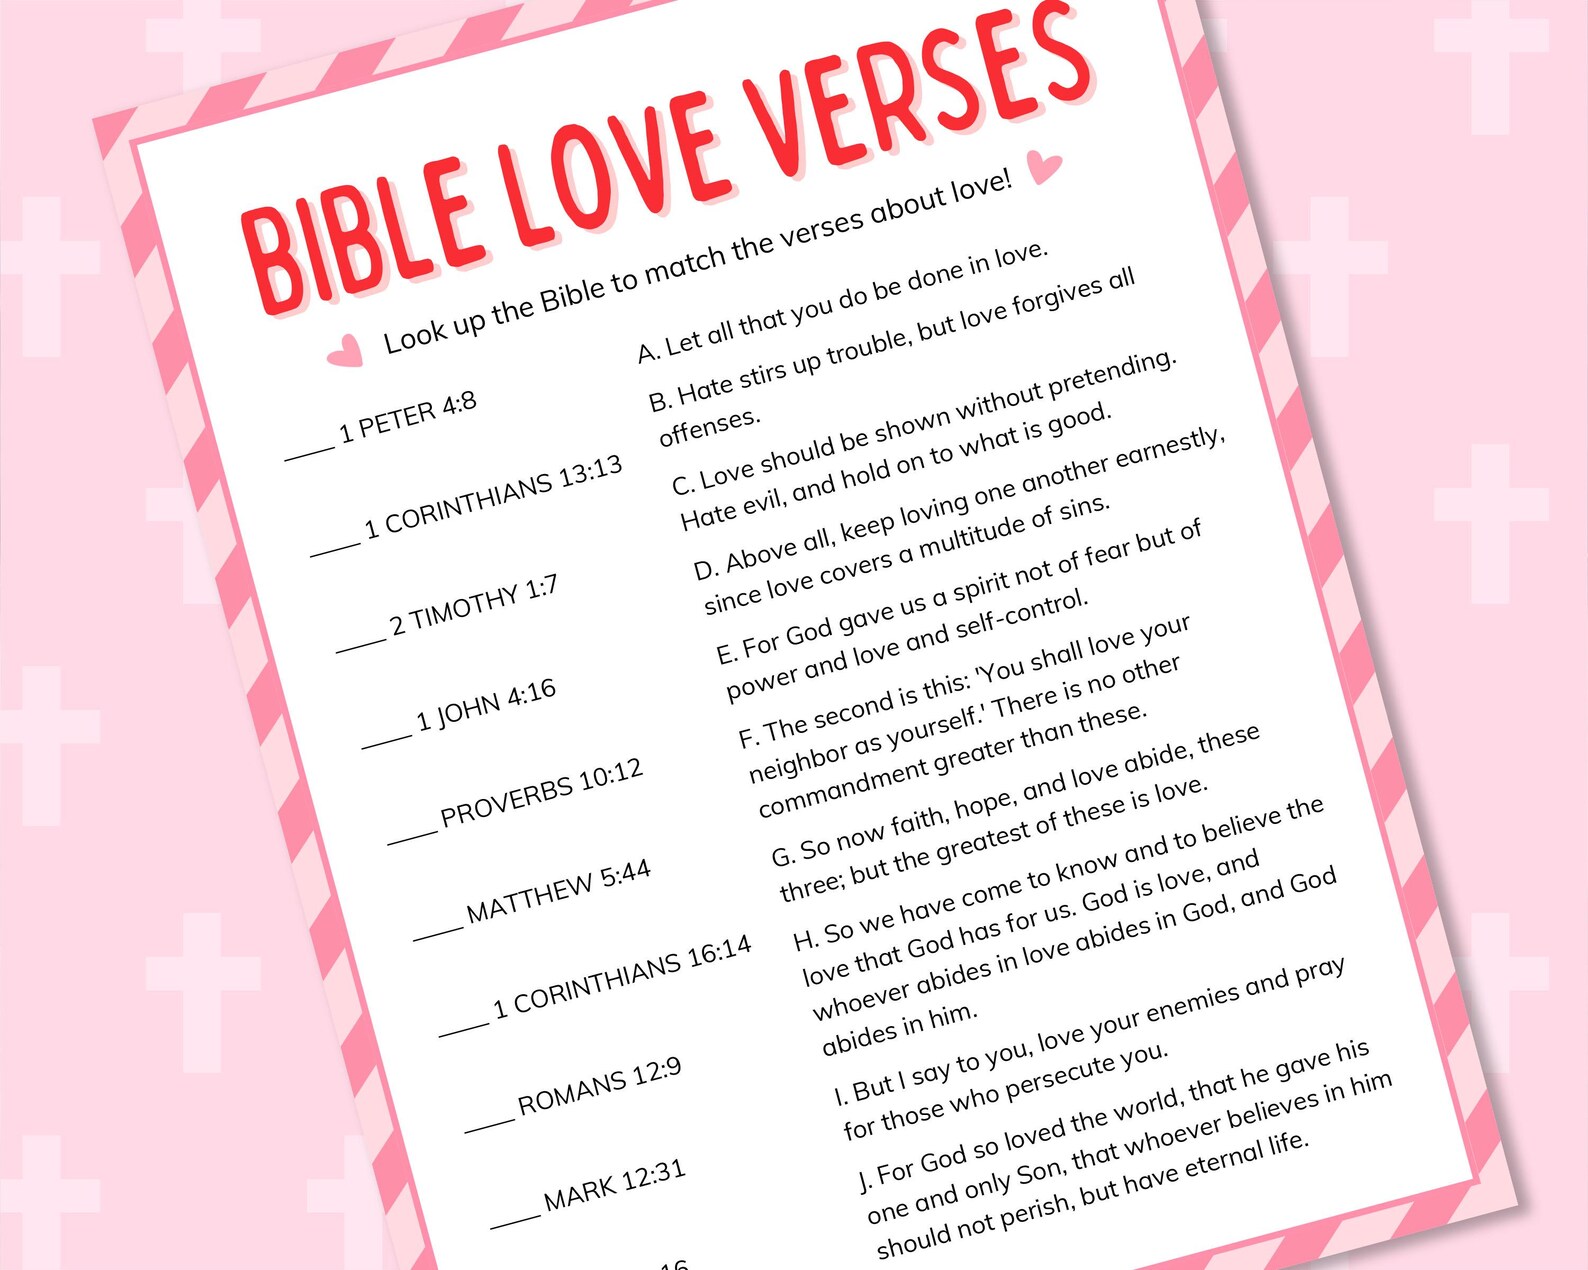 BIBLE LOVE VERSES
Look up the Bible to match the verses about love!
____ 1 PETER 4:8
____ 1 CORINTHIANS 13:13
____ 2 TIMOTHY 1:7
____ 1 JOHN 4:16
____ PROVERBS 10:12
____ MATTHEW 5:44
____ 1 CORINTHIANS 16:14
____ ROMANS 12:9
____ MARK 12:31
16
A. Let all that you do be done in love.
B. Hate stirs up trouble, but love forgives all
offenses.
C. Love should be shown without pretending.
Hate evil, and hold on to what is good.
D. Above all, keep loving one another earnestly,
since love covers a multitude of sins.
E. For God gave us a spirit not of fear but of
power and love and self-control.
F. The second is this: 'You shall love your
neighbor as yourself.' There is no other
commandment greater than these.
G. So now faith, hope, and love abide, these
three; but the greatest of these is love.
H. So we have come to know and to believe the
love that God has for us. God is love, and
whoever abides in love abides in God, and God
abides in him.
I. But I say to you, love your enemies and pray
for those who persecute you.
J. For God so loved the world, that he gave his
one and only Son, that whoever believes in him
should not perish, but have eternal life.